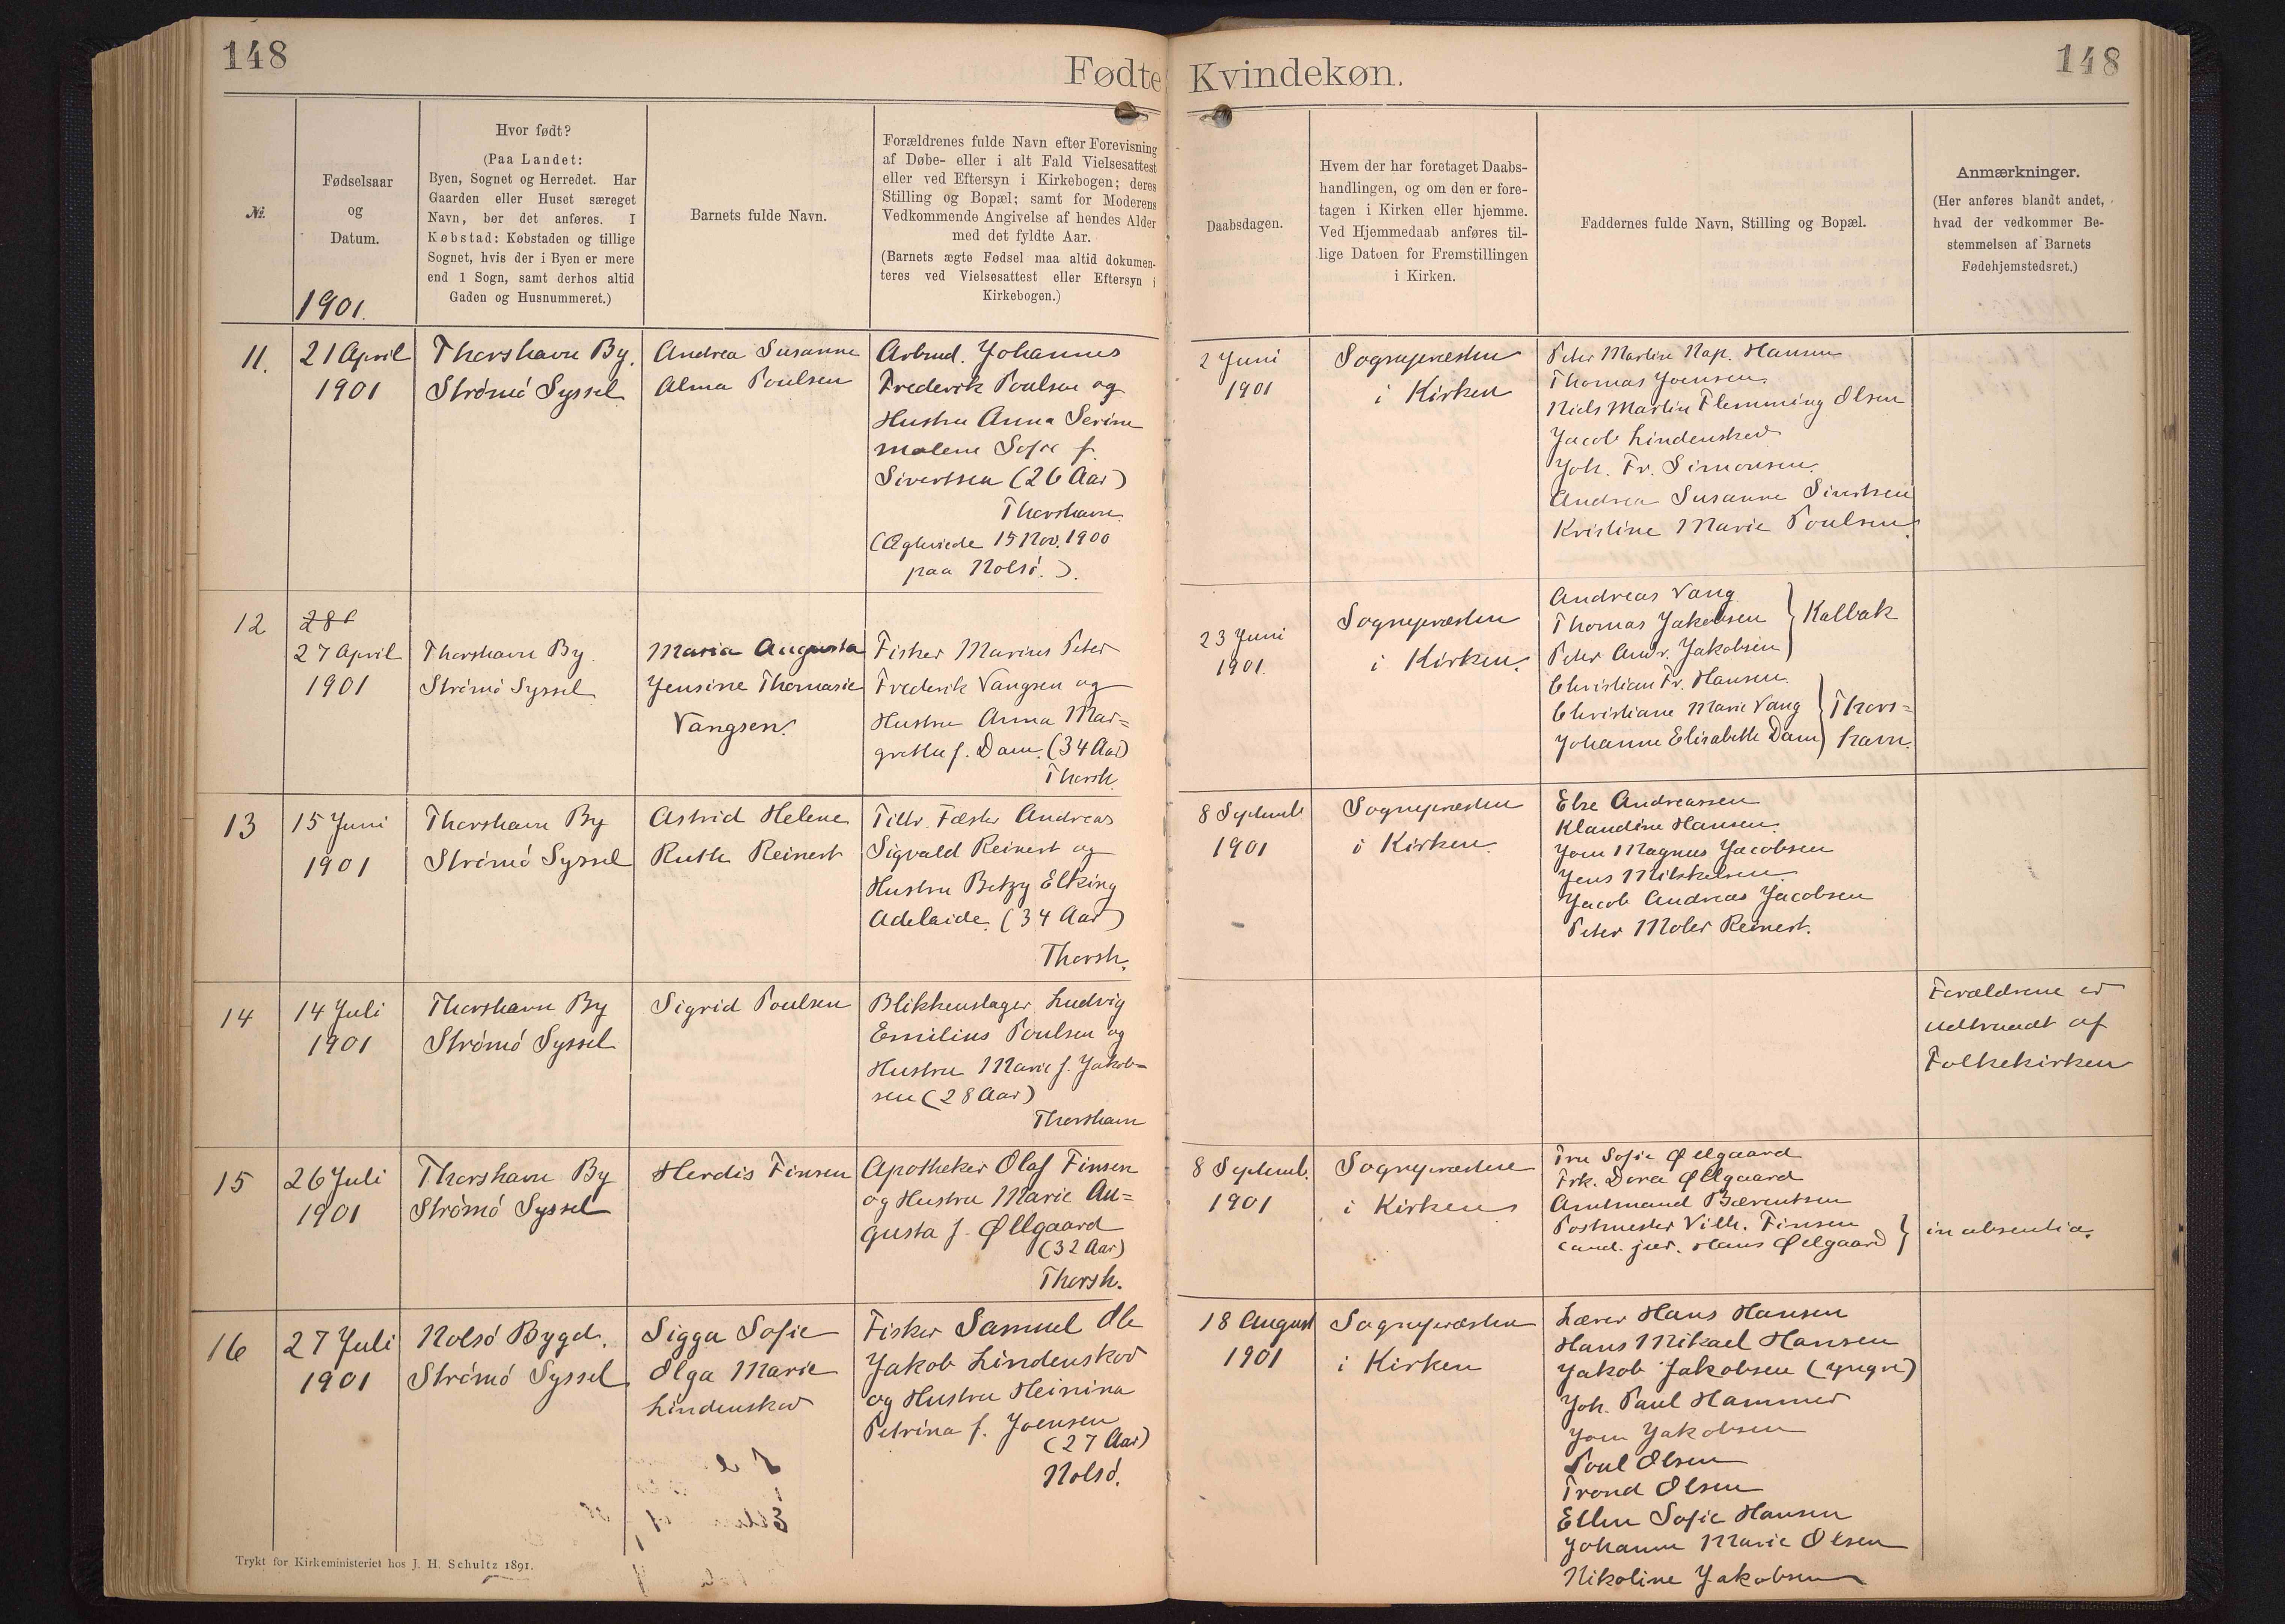 148
Fødte
Kvindekøn.
148
№.
Fødselsaar
og
Datum.
1901.
Hvor født?
(Paa Landet:
Byen, Sognet og Herredet. Har
Gaarden eller Huset særeget
Navn, bør det anføres. I
Købstad: Købstaden og tillige
Sognet, hvis der i Byen er mere
end 1 Sogn, samt derhos altid
Gaden og Husnummeret.)
Barnets fulde Navn.
Forældrenes fulde Navn efter Forevisning
af Døbe- eller i alt Fald Vielsesattest
eller ved Eftersyn i Kirkebogen; deres
Stilling og Bopæl; samt for Moderens
Vedkommende Angivelse af hendes Alder
med det fyldte Aar.
(Barnets ægte Fødsel maa altid dokumen-
teres ved Vielsesattest eller Eftersyn i
Kirkebogen.)
Daabsdagen.
Hvem der har foretaget Daabs-
handlingen, og om den er fore-
tagen i Kirken eller hjemme.
Ved Hjemmedaab anføres til-
lige Datoen for Fremstillingen
i Kirken.
Faddernes fulde Navn, Stilling og Bopæl.
Anmærkninger.
(Her anføres blandt andet,
hvad der vedkommer Be-
stemmelsen af Barnets
Fødehjemstedsret.)
11.
21 April
1901
Thorshavn By.
Strømø Syssel
Andrea Susanne
Alma Poulsen
Arbmd. Johannes
Frederik Poulsen og
Hustru Anna Serine
Malene Sofie f.
Sivertsen (26 Aar)
Thorshavn.
(Ægteviede 15 Nov. 1900
paa Nolsø.).
2 Juni
1901
Sognepræsten
i Kirken
Peter Martin Nap. Hansen
Thomas Joensen.
Niels Martin Flemming Olsen
Jacob Lindenskov
Joh. Fr. Simonsen.
Andrea Susanne Sivertsen
Kristine Marie Poulsen.
12
27 April
1901
Thorshavn By.
Strømø Syssel
Maria Augusta
Jensine Thomasie
Vangsen.
Fisker Marius Peter
Frederik Vangsen og
Hustru Anna Mar=
gretha f. Dam. (34 Aar)
Thorsh.
23 Juni
1901.
Sognepræsten
i Kirken.
Andreas Vang
Thomas Jakobsen
Peter Andr. Jakobsen
Kalbak
Christian Fr. Hansen.
Christiane Marie Vang
Johanne Elisabeth Dam
Thors=
havn.
13
15 Juni
1901
Thorshavn By
Strømø Syssel
Astrid Helene
Ruth Reinert
Tillr. Fæster Andreas
Sigvald Reinert og
Hustru Betzy Elking
Adelaide. (34 Aar)
Thorsh.
8 Septemb.
1901
Sognepræsten
i Kirken.
Else Andreassen
Klandine Hansen.
Joen Magnus Jacobsen
Jens Mikkelsen.
Jacob Andreas Jacobsen
Peter Moler Reinert.
14
14 Juli
1901
Thorshavn By
Strømø Syssel
Sigrid Poulsen
Blikkenslager Ludvig
Emilius Poulsen og
Hustru Marie f. Jakob=
sen (28 Aar)
Thorshavn
Forældrene er
udtraadt af
Folkekirken
15
26 Juli
1901
Thorshavn By
Strømø Syssel
Herdis Finsen
Apotheker Olaf Finsen
og Hustru Marie Au=
gusta f. Øllgaard
(32 Aar)
Thorsh.
8 Septemb.
1901
Sognepræsten
i Kirken
Fru Sofie Øllgaard
Frk. Dora Øllgaard
Amtmand Bærentsen
Postmester Vilh. Finsen
cand. jur. Hans Øllgaard
in absentia.
16
27 Juli
1901
Nolsø Bygd.
Strømø Syssel
Sigga Sofie
Olga Marie
Lindenskov
Fisker Samuel Ole
Jakob Lindenskov
og Hustru Heinina
Petrina f. Joensen
(27 Aar)
Nolsø.
18 August
1901
Sognepræsten
i Kirken
Lærer Hans Hansen
Hans Mikael Hansen
Jakob Jakobsen (yngre)
Joh. Paul Hammer
Joen Jakobsen
Poul Olsen
Trond Olsen
Ellen Sofie Hansen
Johanne Marie Olsen
Nikoline Jakobsen
Trykt for Kirkeministeriet hos J. H. Schultz 1891.